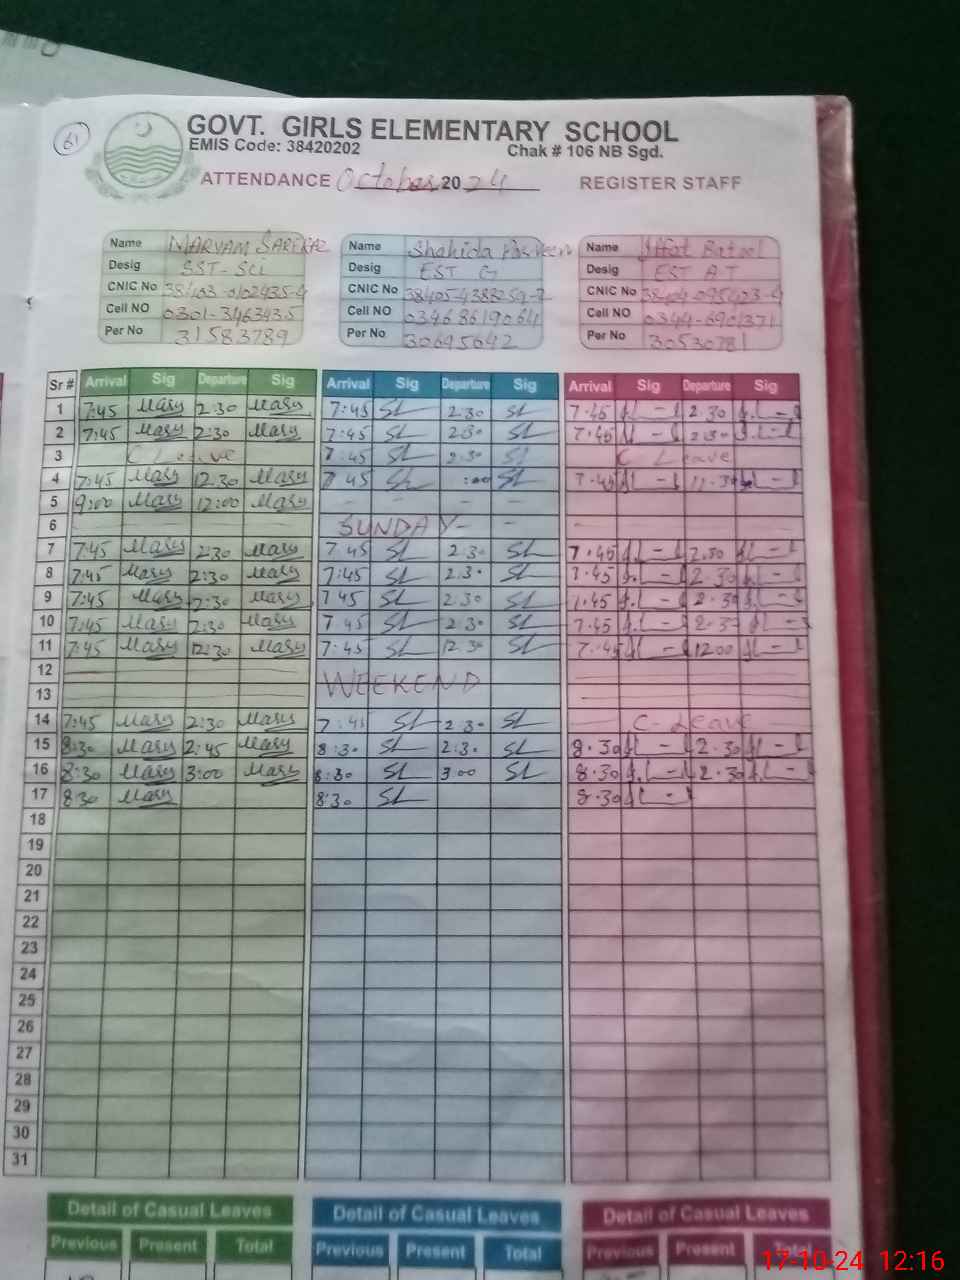 61
GOVT. GIRLS ELEMENTARY SCHOOL
EMIS Code: 38420202 Chak # 106 NB Sgd.
ATTENDANCE October 2024 REGISTER STAFF
Name MARYAM SARFRAZ Name Shahida Parveen Name Iffat Batool
Desig SST-Sci Desig EST G Desig EST A T
CNIC No CNIC No CNIC No
Cell NO 0301-3463435 Cell NO 0346 8619064 Cell NO 0344-6901371
Per No 31583789 Per No 30695642 Per No 30530781
Sr # Arrival Sig Departure Sig Arrival Sig Departure Sig Arrival Sig Departure Sig
1 7:45 Mary 2:30 Mary 7:45 SL 2:30 SL 7.45 2.30
2 7:45 Mary 2:30 Mary 7:45 SL 2:30 SL 7.45 2.30
3 C Leave 7:45 SL 2:30 SL C Leave
4 7:45 Mary 12:30 Mary 7 45 SL :00 SL 7.45 11.30
5 9:00 Mary 12:00 Mary - - - -
6 SUNDAY - -
7 7:45 Mary 2:30 Mary 7 45 SL 2:30 SL 7.45 2.30
8 7:45 Mary 2:30 Mary 7:45 SL 2:30 SL 7.45 2.30
9 7:45 Mary 2:30 Mary 7 45 SL 2:30 SL 7.45 2.30
10 7:45 Mary 2:30 Mary 7.45 SL 2:30 SL 7.45 2.30
11 7:45 Mary 12:30 Mary 7:45 SL 12:30 SL 7.45 1200
12 WEEKEND
13
14 7:45 Mary 2:30 Mary 7:45 SL 2:30 SL C-Leave
15 8:30 Mary 2:45 Mary 8:30 SL 2:30 SL 8.30 2.30
16 8:30 Mary 3:00 Mary 8:30 SL 3:00 SL 8.30 2.30
17 8:30 Mary 8:30 SL 8.30
18
19
20
21
22
23
24
25
26
27
28
29
30
31
Detail of Casual Leaves Detail of Casual Leaves Detail of Casual Leaves
Previous Present Total Previous Present Total Previous Present Total
17-10-24 12:16